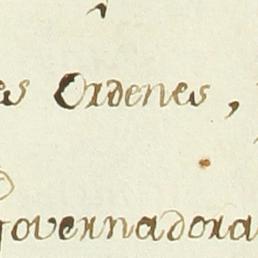 es Ordenes,
governadora